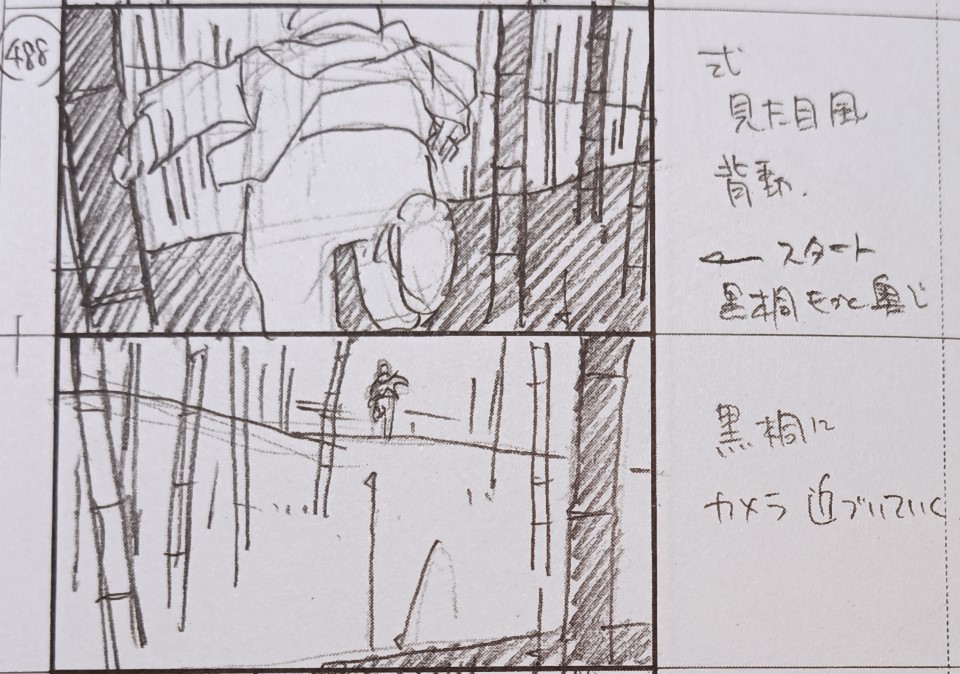 488
式
見た目風
背動.
← スタート
黒桐もかと黒じ
黒桐に
カメラ近づいていく